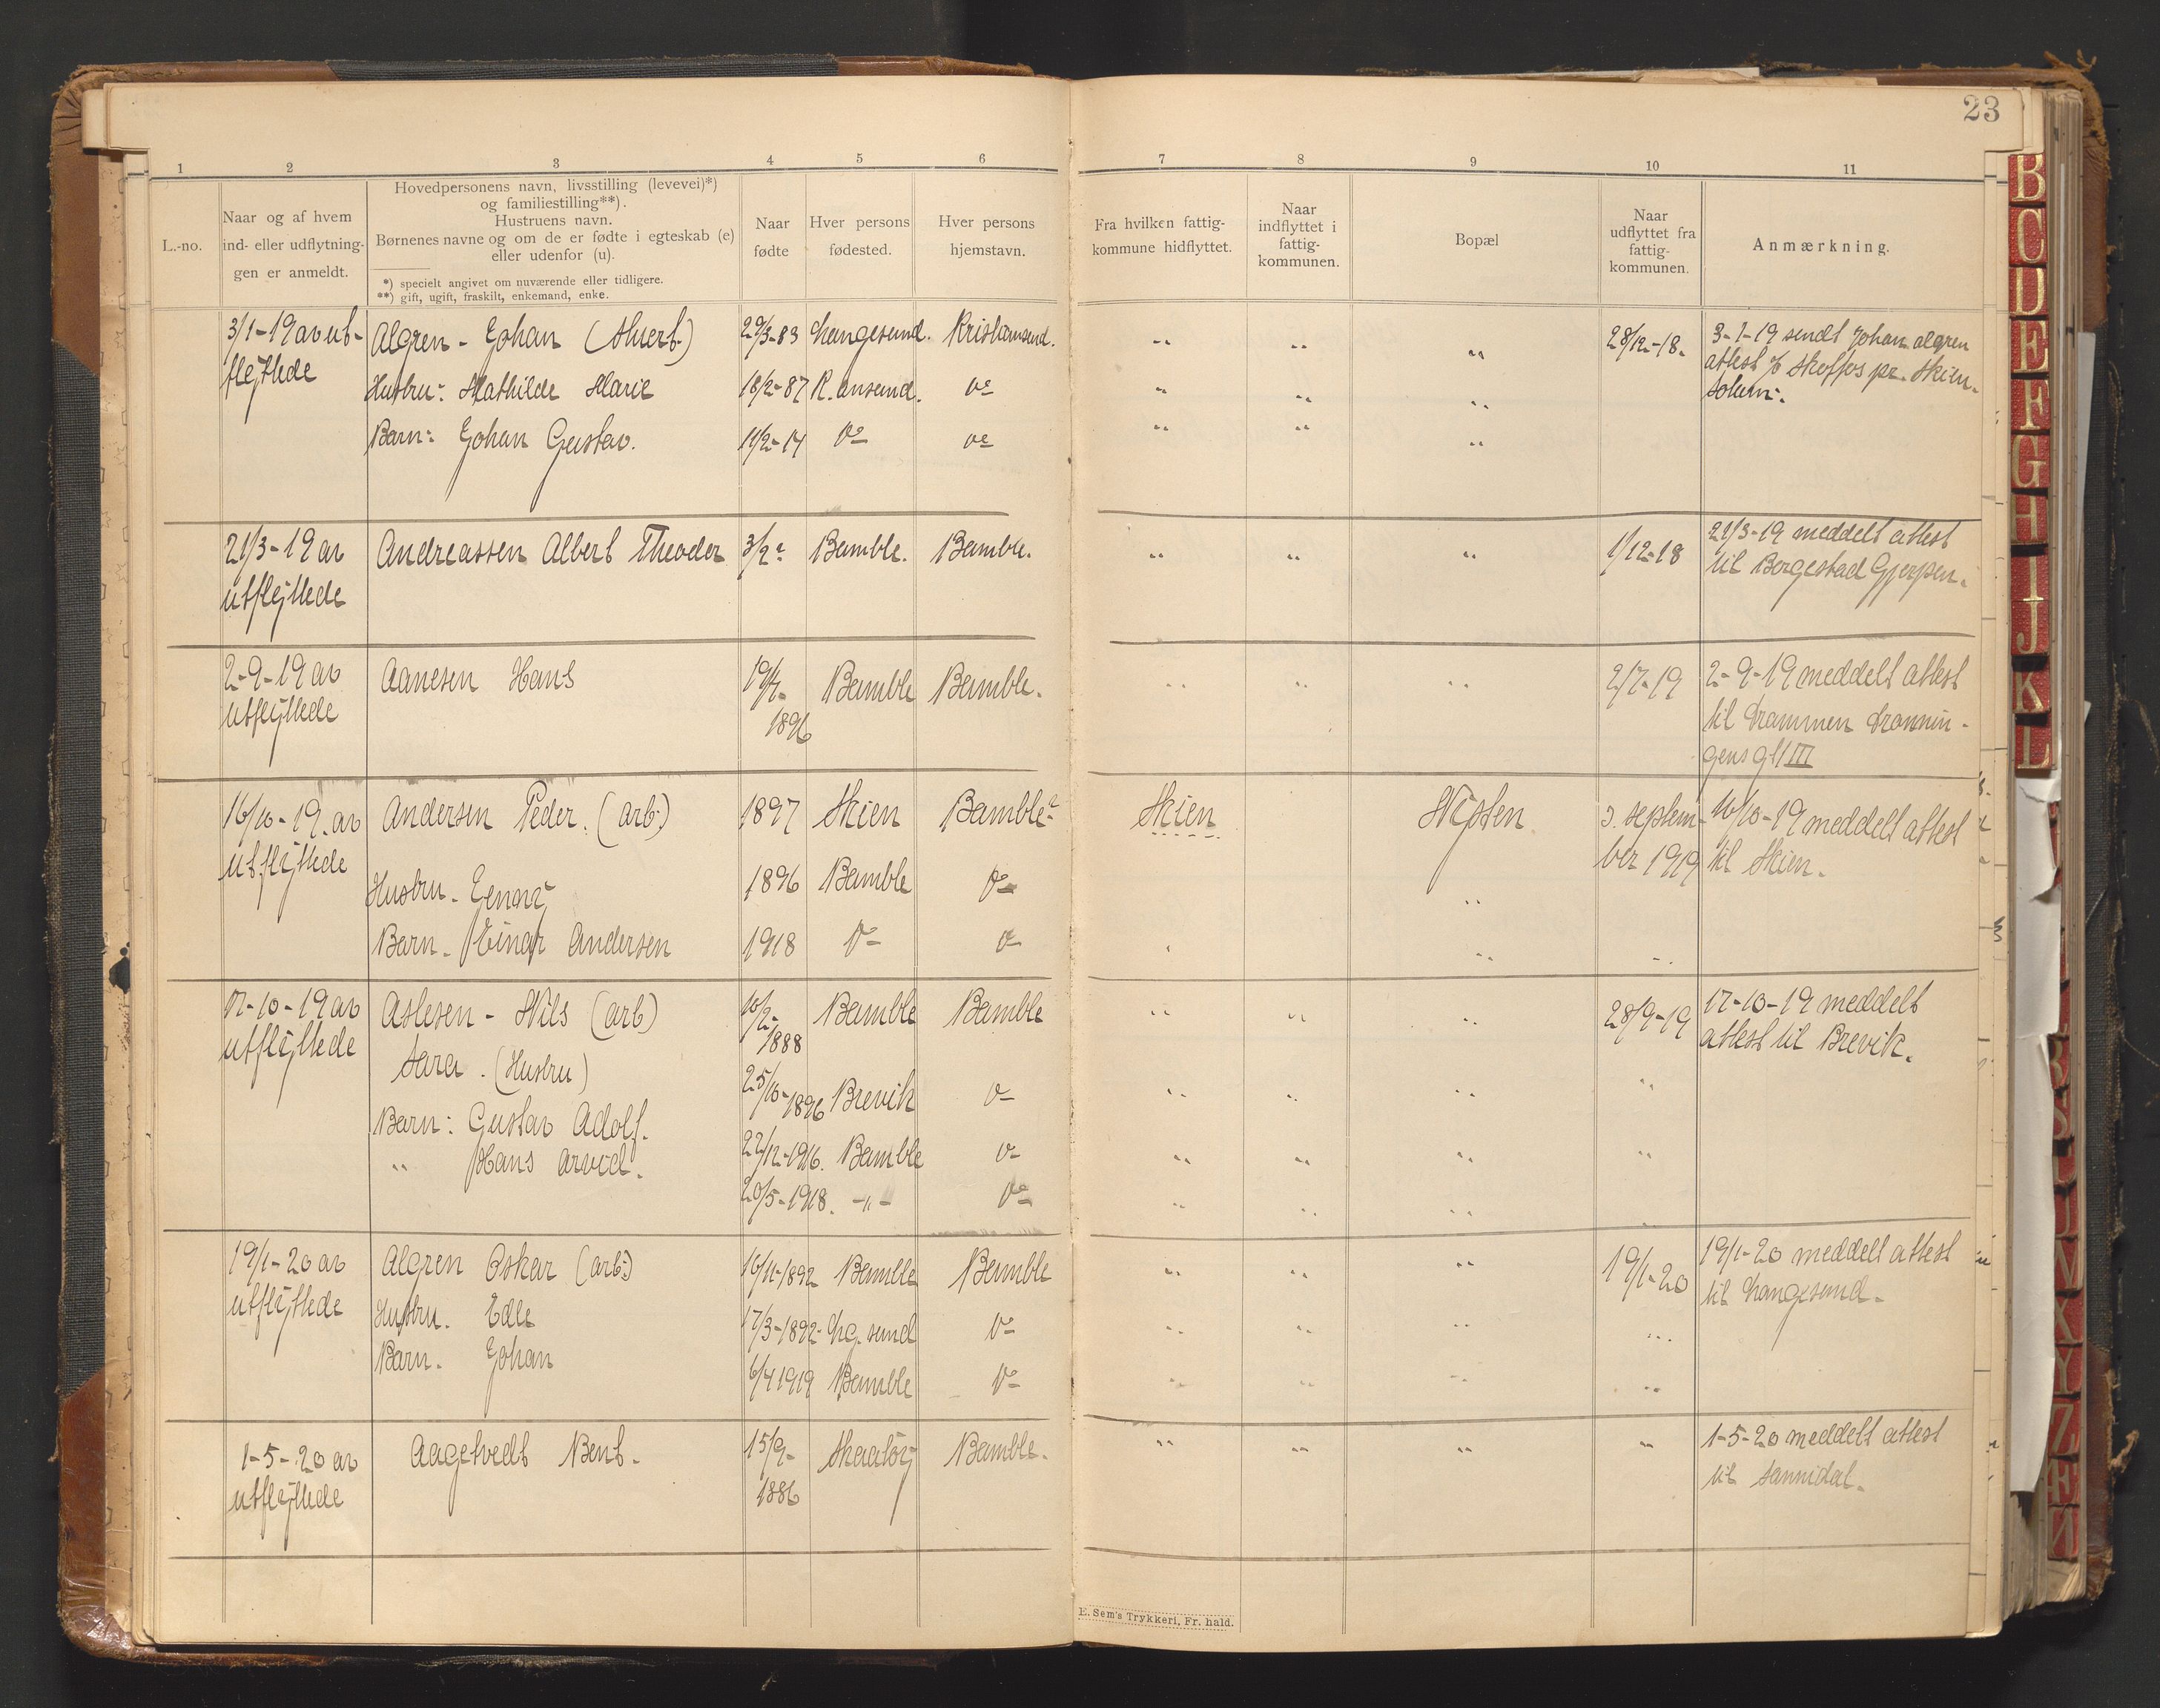 23
1 2 3 4 5 6 7 8 9 10 11
L.-no.
Naar og af hvem
ind- eller udflytnin-
gen er anmeldt.
Hovedpersonens navn, livsstilling (levevei)*)
og familiestilling**).
Hustruens navn.
Børnenes navne og om de er fødte i egteskab (e)
eller udenfor (u).
*) specielt angivet om nuværende eller tidligere.
**) gift, ugift, fraskilt, enkemand, enke.
Naar
fødte
Hver persons
fødested.
Hver persons
hjemstavn.
Fra hvilken fattig-
kommune hidflyttet.
Naar
indflyttet i
fattig-
kommunen.
Bopæl
Naar
udflyttet fra
fattig-
kommunen.
Anmærkning.
3/1-19 av ut-
flyttede
Algren - Johan
29/3-83 Langesund. Kristiansund. " " " 28/12-18. 3-1-19 sendt Johan Algren
attest % Skotfos pr. Skien.
Solum.
Hustru: Mathilde Marie 18/2-87 K.ansund. Do " " "
Barn: Johan Gustav. 11/2-14 Do Do " " "
21/3-19 av
utflyttede
Andreassen Albert Theodor 3/2 Bamble. Bamble. " " " 1/12-18 21/3-19 meddelt attest
til Borgestad Gjerpen.
2-9-19 av
utflyttede
Aanesen Hans 19/7-
1896 Bamble Bamble. " " " 2/7-19 2-9-19 meddelt attest
til Drammen Dronnin-
gens gt 111
16/10-19. av
utflyttede
Andersen Peder. (arb.) 1897 Skien Bamble? Skien Nipten septem-
ber 1919 16/10-19 meddelt attest
til Skien.
Hustru. 1896 Bamble Do "
Barn. Einar Andersen 1918 Do Do " "
17-10-19 av
utflyttede
Aslesen - Nils (arb) 10/2-
1888 Bamble Bamble " " " 28/9-19 17-10-19 meddelt
attest til Brevik.
Sara. (Hustru) 25/10-1896 Brevik Do " " " "
Barn: Gustav Adolf. 22/12-1916. Bamble Do " " " "
" Hans Arvid. 20/5-1918. -"- Do " " "
19/1-20 av
utflyttede
Algren Oskar (arb.) 16/11-1892 Bamble Bamble " " " 19/1-20 19/1-20 meddelt attest
til Langesund.
Hustru. Edle 17/3-1892 Lg.sund Do " " " "
Barn. Johan 6/4 1919 Bamble Do " " " "
1-5-20 av
utflyttede
Aagetvedt Bent. 15/9-
1886 Skaatöy Bamble. " " " " 1-5-20 meddelt attest
til Sannidal.
E. Sem's Trykkeri, Fr. hald.
B
C
D
E
F
G
H
I
J
K
L
X
Y
Z
Æ